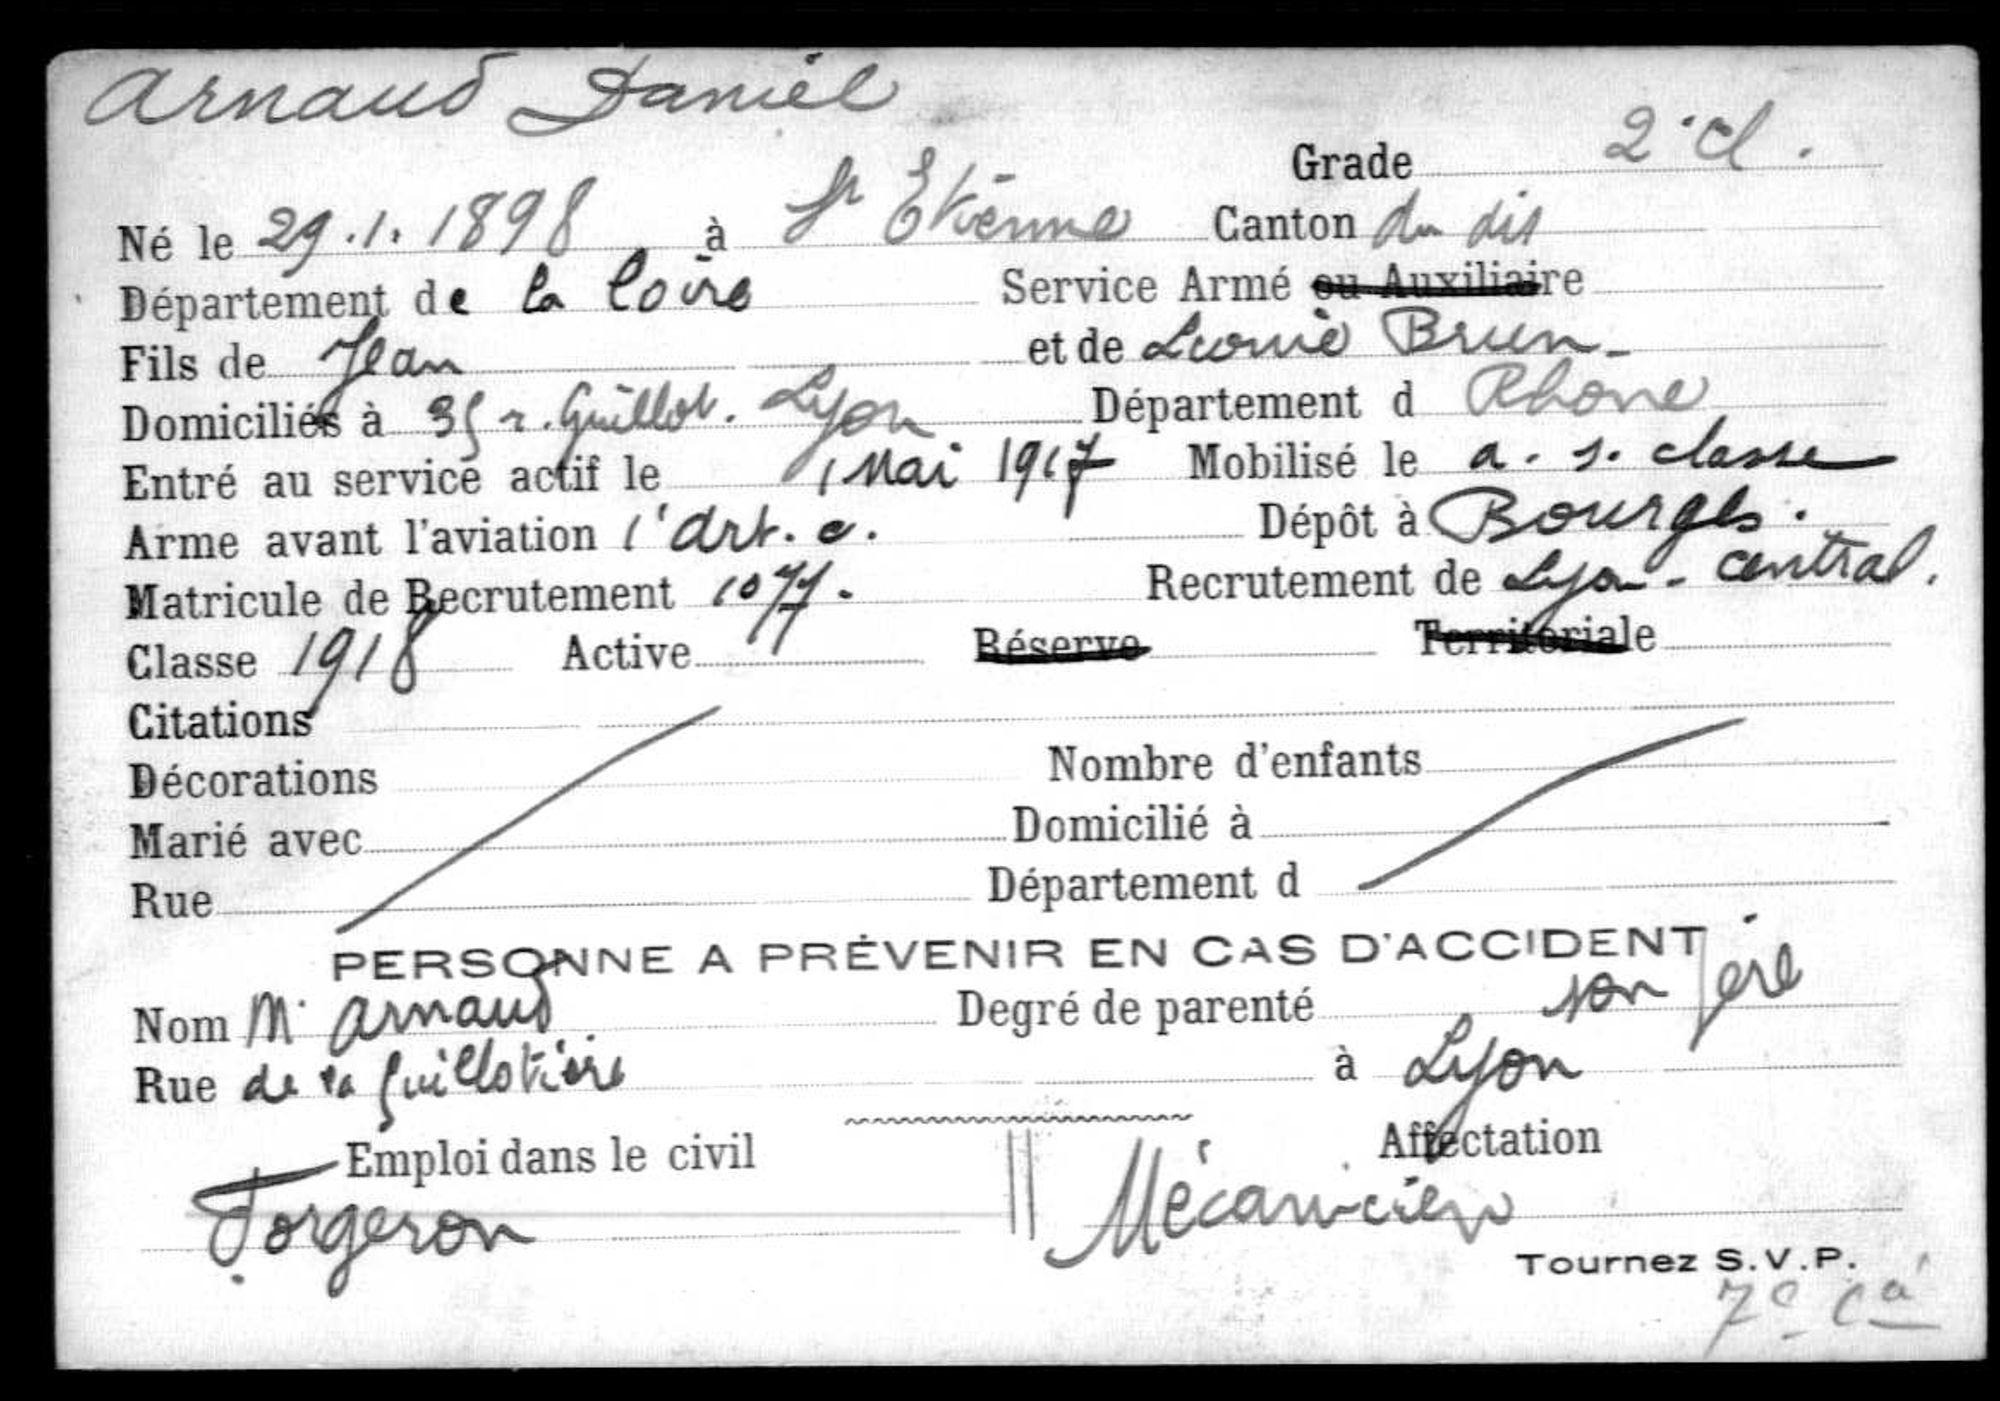 Arnaud Daniel
Grade 2e cl.
Né le 29.1.1898 à St Etienne Canton du dit
Département de la Loire Service Armé ou Auxiliaire
Fils de Jean et de Leonie Brun
Domiciliés à 35 r. Guillot. Lyon Département d Rhone
Entré au service actif le 1 Mai 1917 Mobilisé le a. s. classe
Arme avant l'aviation l'Art. c. Dépôt à Bourges.
Matricule de Recrutement 1077. Recrutement de Lyon - central.
Classe 1918 Active Réserve Territoriale
Citations
Décorations Nombre d'enfants
Marié avec Domicilié à
Rue Département d
PERSONNE A PRÉVENIR EN CAS D'ACCIDENT
Nom Mr Arnaud Degré de parenté son père
Rue de la Guillotière à Lyon
Emploi dans le civil Affectation
Forgeron Mécanicien
Tournez S.V.P.
7e Cie